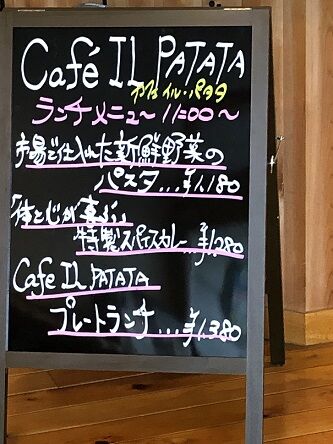 Café IL PATATA
カフェ イル・パタタ
ランチメニュー 11:00～
市場で仕入れた新鮮野菜の
パスタ...¥1,180
「体と心が喜ぶ」
特製スパイスカレー...¥1,280
Cafe IL PATATA
プレートランチ...¥1,380